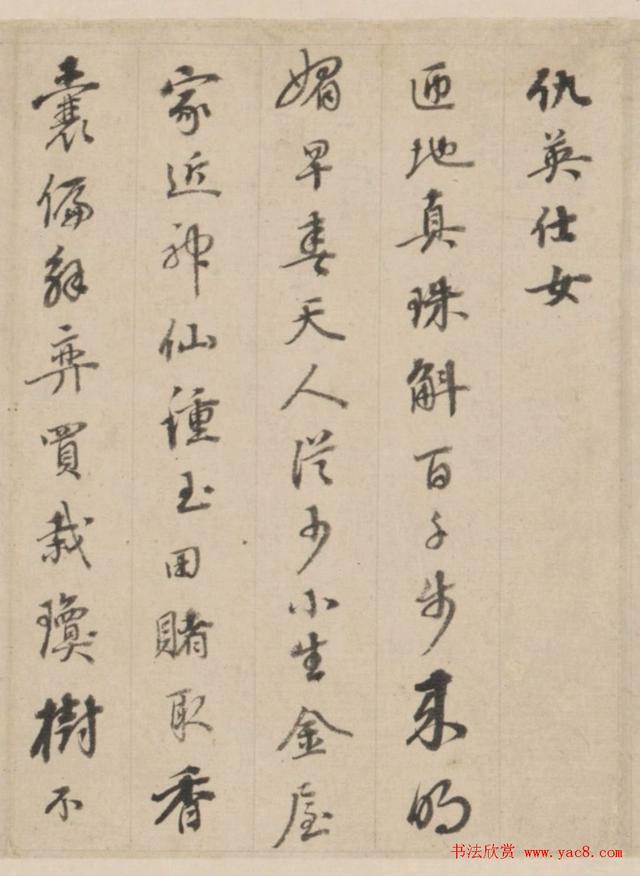 仇英仕女
匝地真珠斛百千步來的
媚早春天人從少小生金屋
家近神仙種玉田賭取香
囊偏解弄買栽瓊樹不
书法欣赏 www.yac8.com